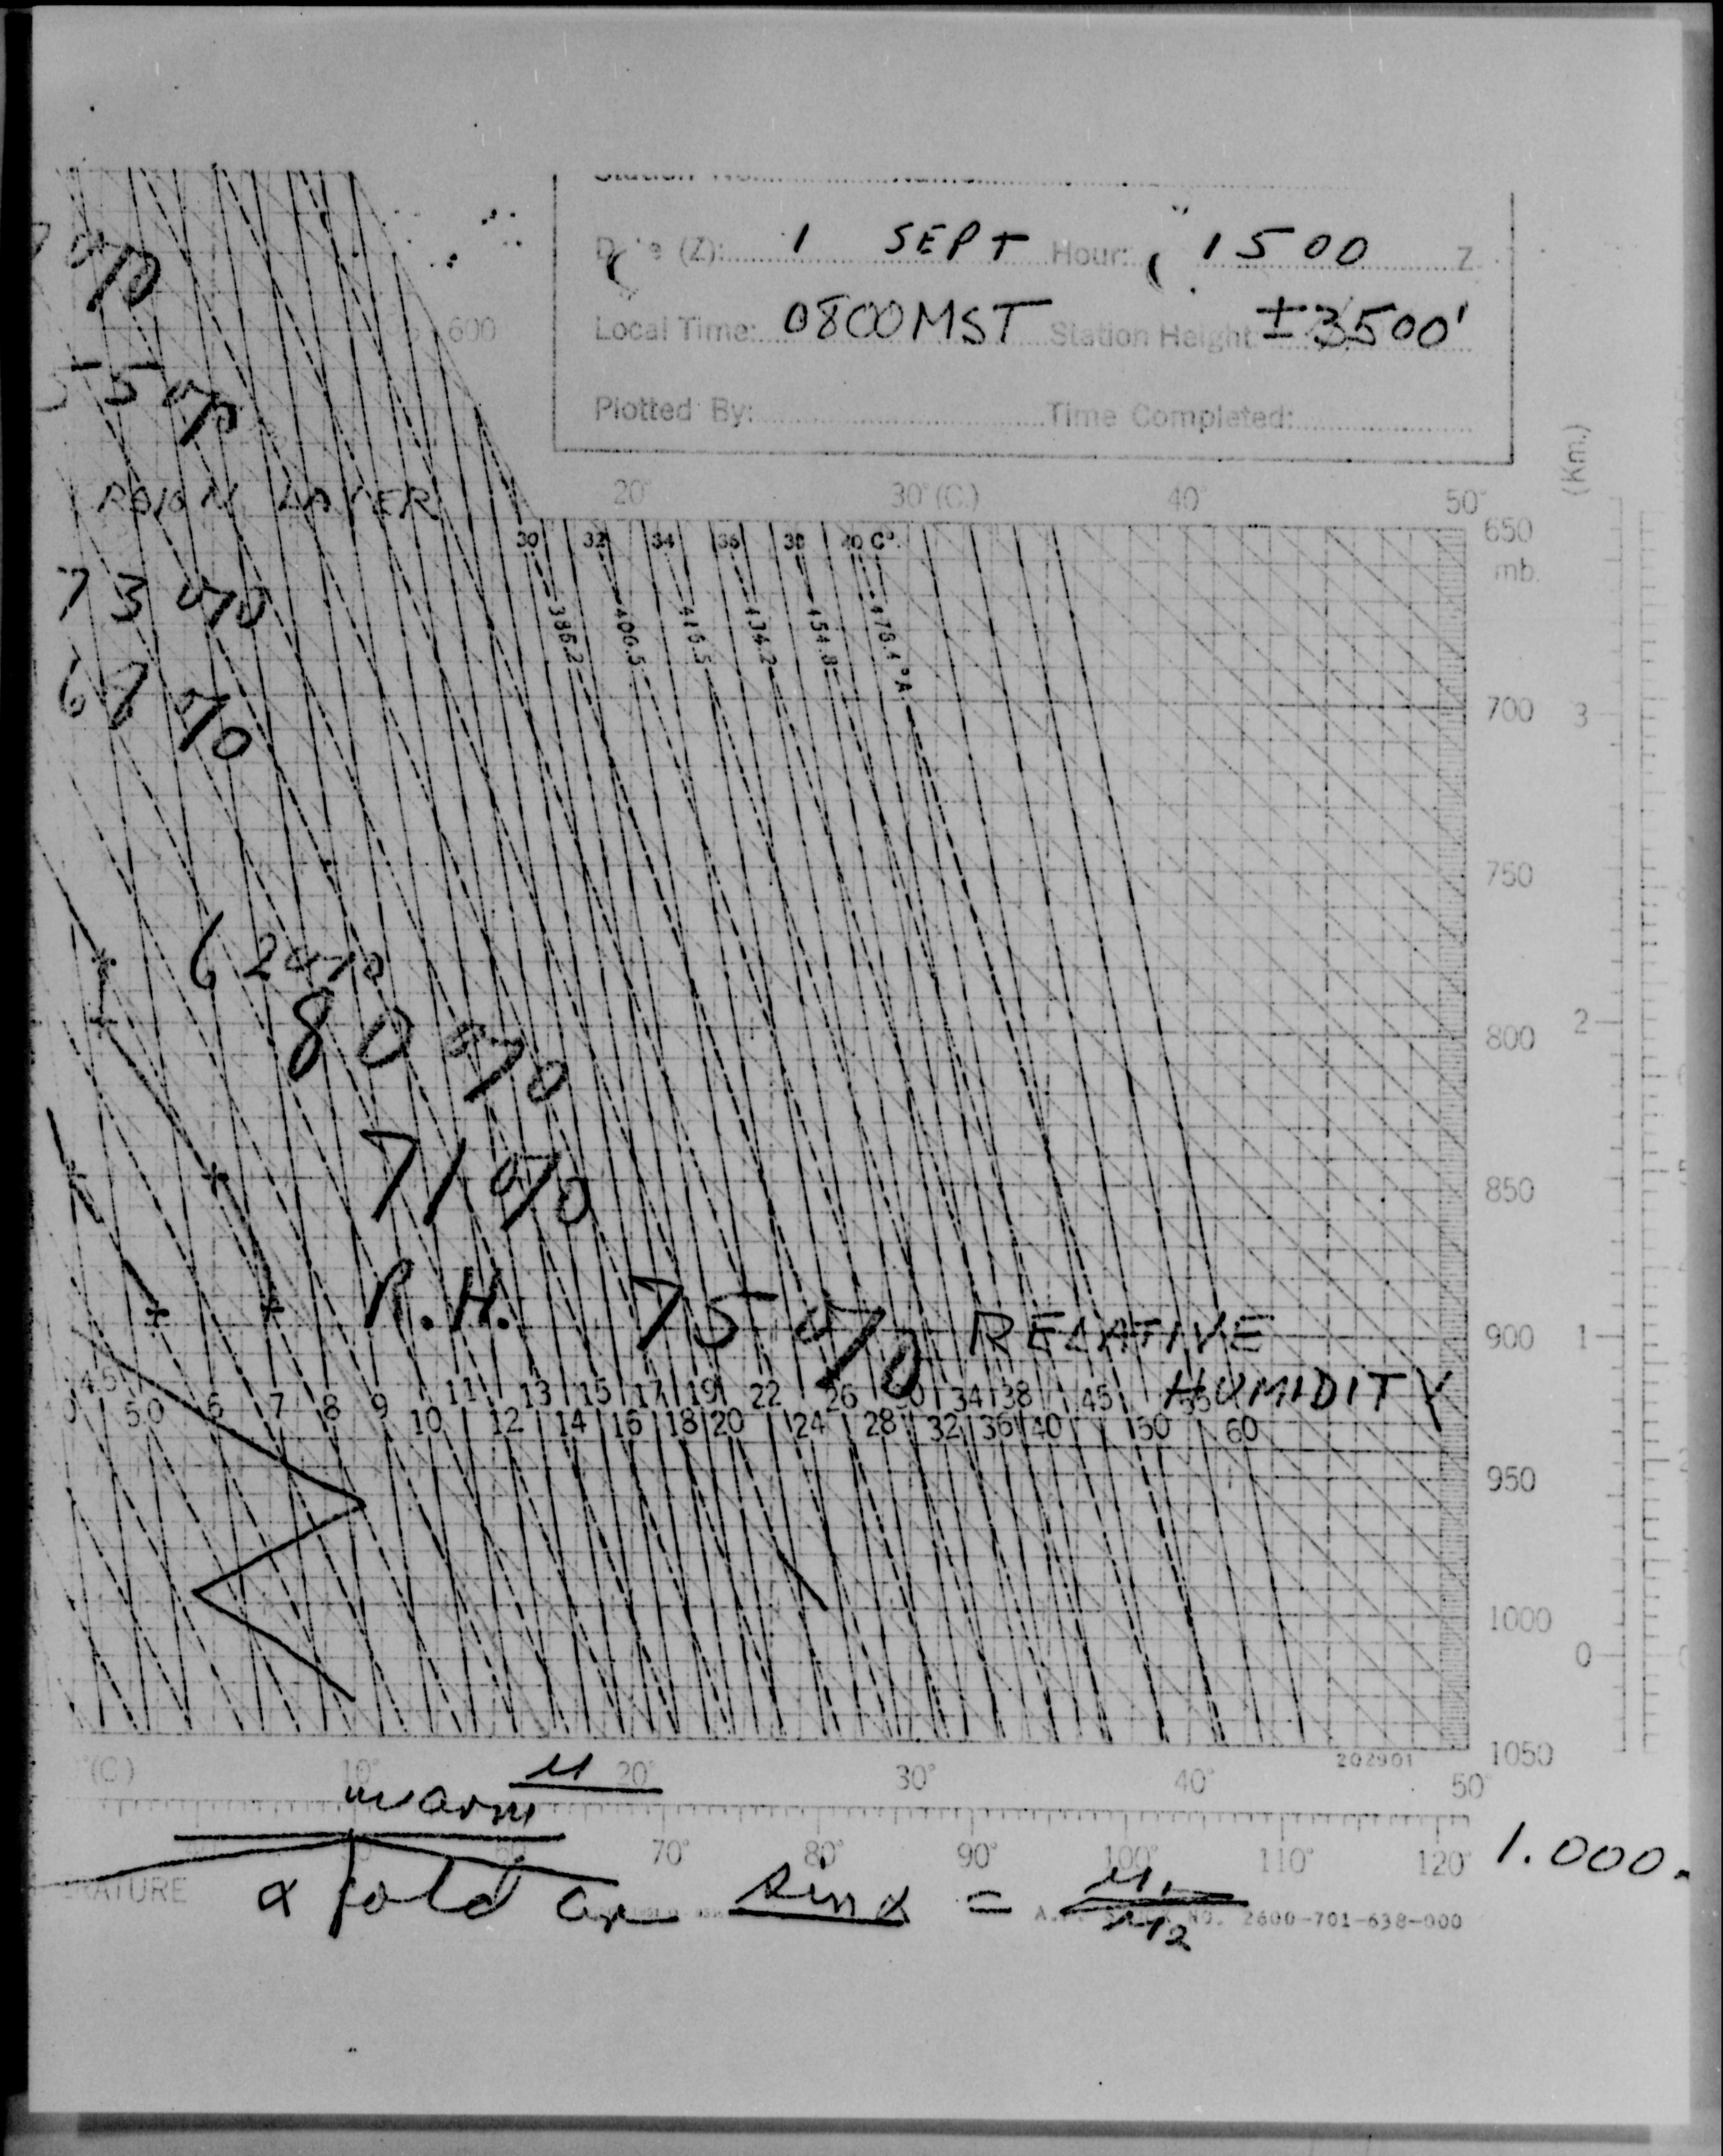 Date (Z): 1 SEPT Hour: 1500 Z
Local Time: 0800MST Station Height: ±3500'
600
Plotted By: Time Completed:
(Km.)
55%
LAYER
20° 30° (C.) 40° 50°
650
mb.
30 32 34 36 38 40 C°
386.2 434.2 454.8 478.4 °A
73%
68%
700 3
750
62%
80%
800 2
71%
850
R.H. 75% RELATIVE
900 1
HUMIDITY
6 7 8 9 11 13 15 17 19 22 26 30 34 38 45 55
5.0 10 12 14 16 18 20 24 28 32 36 40 50 60
950
1000
0
202901
1050
(C) 10° 20° 30° 40° 50°
warm
70° 80° 90° 100° 110° 120°
1.000
α sin α = μ₁/μ₂
2600-701-638-000